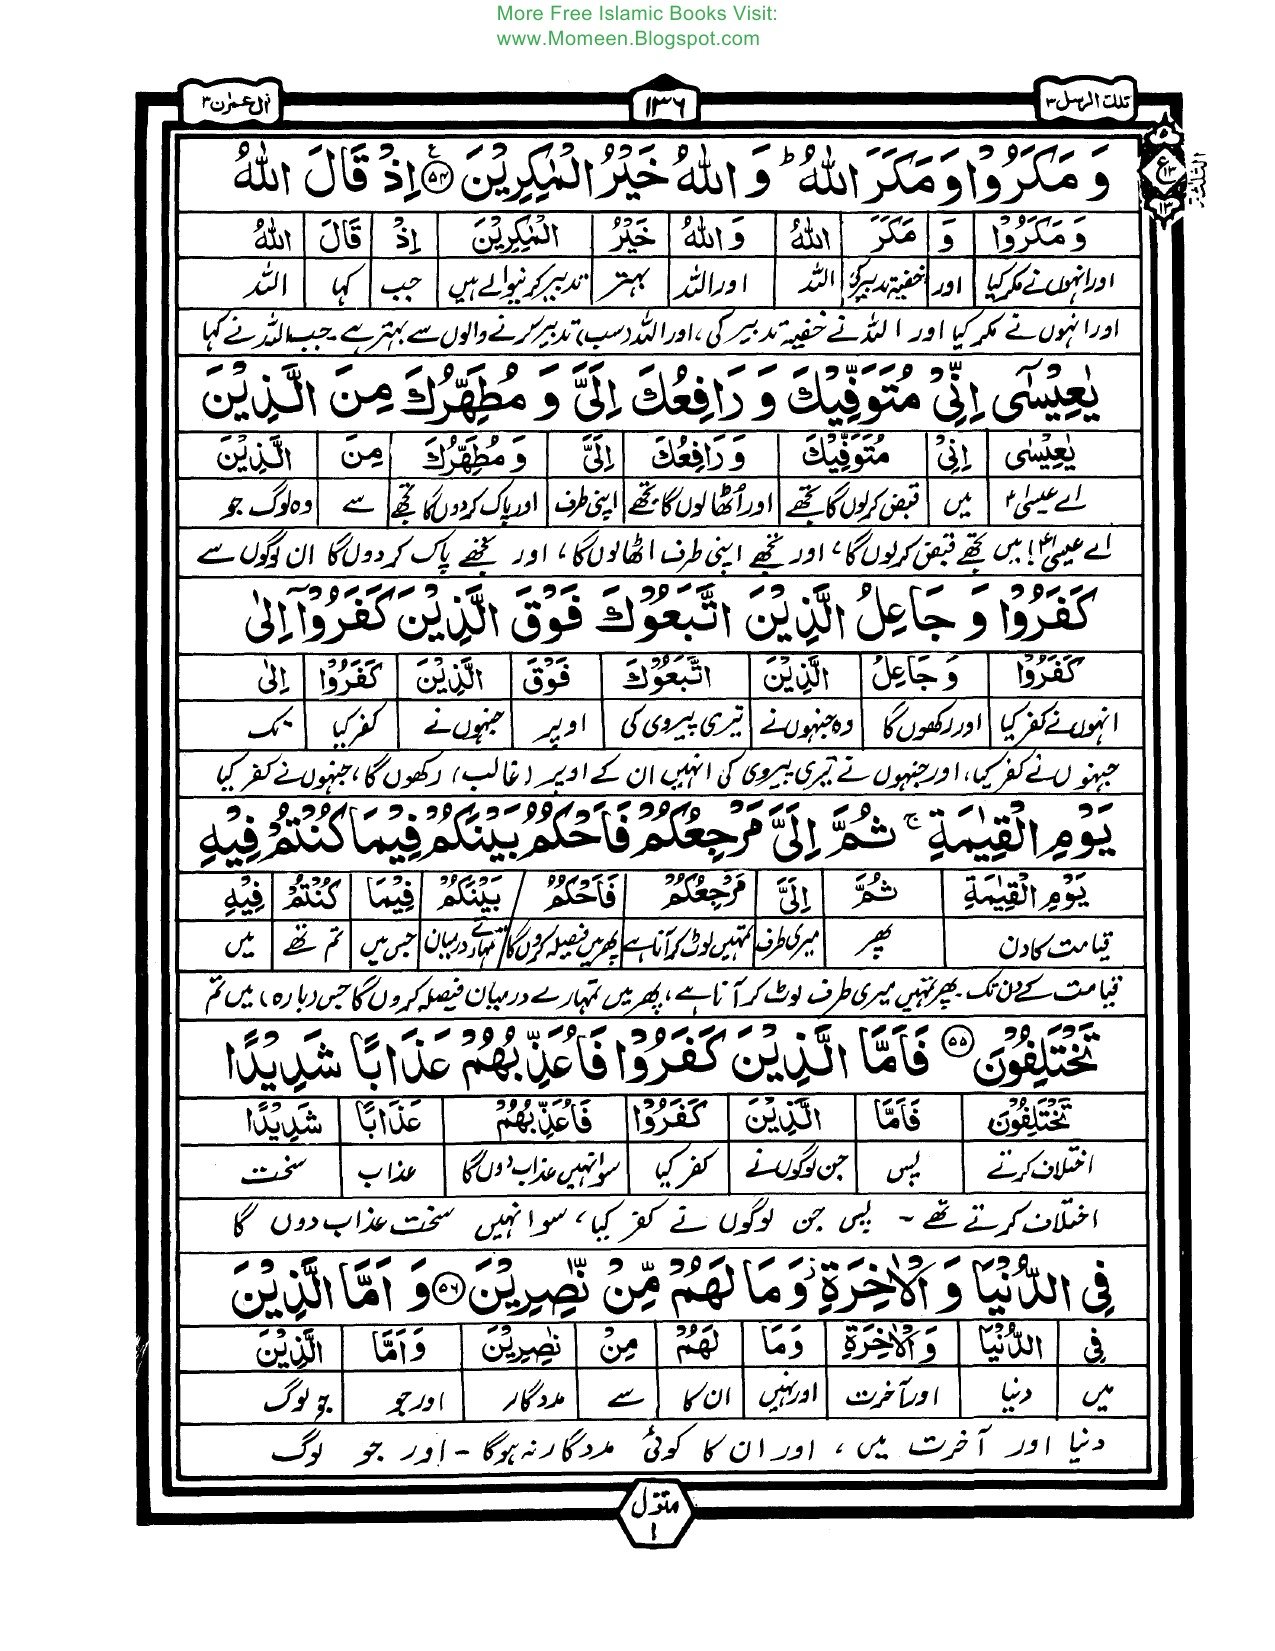 More Free Islamic Books Visit:
www.Momeen.Blogspot.com
تلك الرسل ۳
۱۳۶
اٰل عمرٰن ۳
وَ مَكَرُوْا وَ مَكَرَ اللّٰهُ ؕ وَ اللّٰهُ خَیْرُ الْمٰكِرِیْنَ ﴿۵۴﴾ ع اِذْ قَالَ اللّٰهُ
وَ مَكَرُوْا وَ مَكَرَ اللّٰهُ وَ اللّٰهُ خَیْرُ الْمٰكِرِیْنَ اِذْ قَالَ اللّٰهُ
اور انہوں نے مکر کیا اور خفیہ تدبیر کی اللہ اور اللہ بہتر تدبیر کرنیوالے ہیں جب کہا اللہ
اور انہوں نے مکر کیا اور اللہ نے خفیہ تدبیر کی، اور اللہ (سب) تدبیر کرنے والوں سے بہتر ہے۔ جب اللہ نے کہا
یٰعِیْسٰۤی اِنِّیْ مُتَوَفِّیْكَ وَ رَافِعُكَ اِلَیَّ وَ مُطَهِّرُكَ مِنَ الَّذِیْنَ
یٰعِیْسٰۤی اِنِّیْ مُتَوَفِّیْكَ وَ رَافِعُكَ اِلَیَّ وَ مُطَهِّرُكَ مِنَ الَّذِیْنَ
اے عیسیٰؑ میں قبض کرلوں گا تجھے اور اُٹھا لوں گا تجھے اپنی طرف اور پاک کردوں گا تجھے سے وہ لوگ جو
اے عیسیٰؑ! میں تجھے قبض کرلوں گا، اور تجھے اپنی طرف اٹھا لوں گا، اور تجھے پاک کردوں گا ان لوگوں سے
كَفَرُوْا وَ جَاعِلُ الَّذِیْنَ اتَّبَعُوْكَ فَوْقَ الَّذِیْنَ كَفَرُوْۤا اِلٰی
كَفَرُوْا وَ جَاعِلُ الَّذِیْنَ اتَّبَعُوْكَ فَوْقَ الَّذِیْنَ كَفَرُوْا اِلٰی
انہوں نے کفر کیا اور رکھوں گا وہ جنہوں نے تیری پیروی کی اوپر جنہوں نے کفر کیا تک
جنہوں نے کفر کیا، اور جنہوں نے تیری پیروی کی انہیں ان کے اوپر (غالب) رکھوں گا، جنہوں نے کفر کیا
یَوْمِ الْقِیٰمَةِ ۚ ثُمَّ اِلَیَّ مَرْجِعُكُمْ فَاَحْكُمُ بَیْنَكُمْ فِیْمَا كُنْتُمْ فِیْهِ
یَوْمِ الْقِیٰمَةِ ثُمَّ اِلَیَّ مَرْجِعُكُمْ فَاَحْكُمُ بَیْنَكُمْ فِیْمَا كُنْتُمْ فِیْهِ
قیامت کا دن پھر میری طرف تمہیں لوٹ کر آنا ہے پھر میں فیصلہ کروں گا تمہارے درمیان جس میں تم تھے میں
قیامت کے دن تک۔ پھر تمہیں میری طرف لوٹ کر آنا ہے، پھر میں تمہارے درمیان فیصلہ کروں گا جس (بارہ) میں تم
تَخْتَلِفُوْنَ ﴿۵۵﴾ فَاَمَّا الَّذِیْنَ كَفَرُوْا فَاُعَذِّبُهُمْ عَذَابًا شَدِیْدًا
تَخْتَلِفُوْنَ فَاَمَّا الَّذِیْنَ كَفَرُوْا فَاُعَذِّبُهُمْ عَذَابًا شَدِیْدًا
اختلاف کرتے پس جن لوگوں نے کفر کیا سو انہیں عذاب دوں گا عذاب سخت
اختلاف کرتے تھے۔ پس جن لوگوں نے کفر کیا، سو انہیں سخت عذاب دوں گا
فِی الدُّنْیَا وَ الْاٰخِرَةِ ؗ وَ مَا لَهُمْ مِّنْ نّٰصِرِیْنَ ﴿۵۶﴾ وَ اَمَّا الَّذِیْنَ
فِی الدُّنْیَا وَ الْاٰخِرَةِ وَ مَا لَهُمْ مِنْ نّٰصِرِیْنَ وَ اَمَّا الَّذِیْنَ
میں دنیا اور آخرت اور نہیں ان کا سے مددگار اور جو جو لوگ
دنیا اور آخرت میں، اور ان کا کوئی مددگار نہ ہوگا۔ اور جو لوگ
منزل
۱